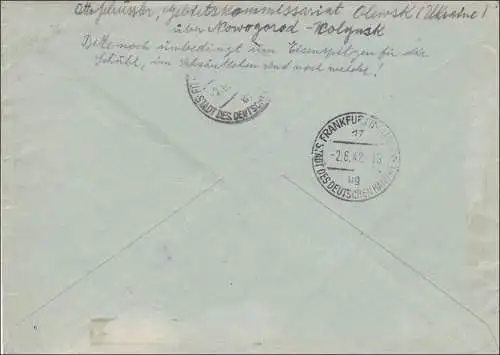 Gebietskommissariat Olewsk (Ukraine)
über Nowogorod - Wolynsk
Bitte noch unbedingt um Eisenspitzen für die
Schuhe, im Schränkchen sind noch welche!
STADT DES DEUTSCHEN
FRANKFURT
17
-2.6.42.
ug
STADT DES DEUTSCHEN HAN